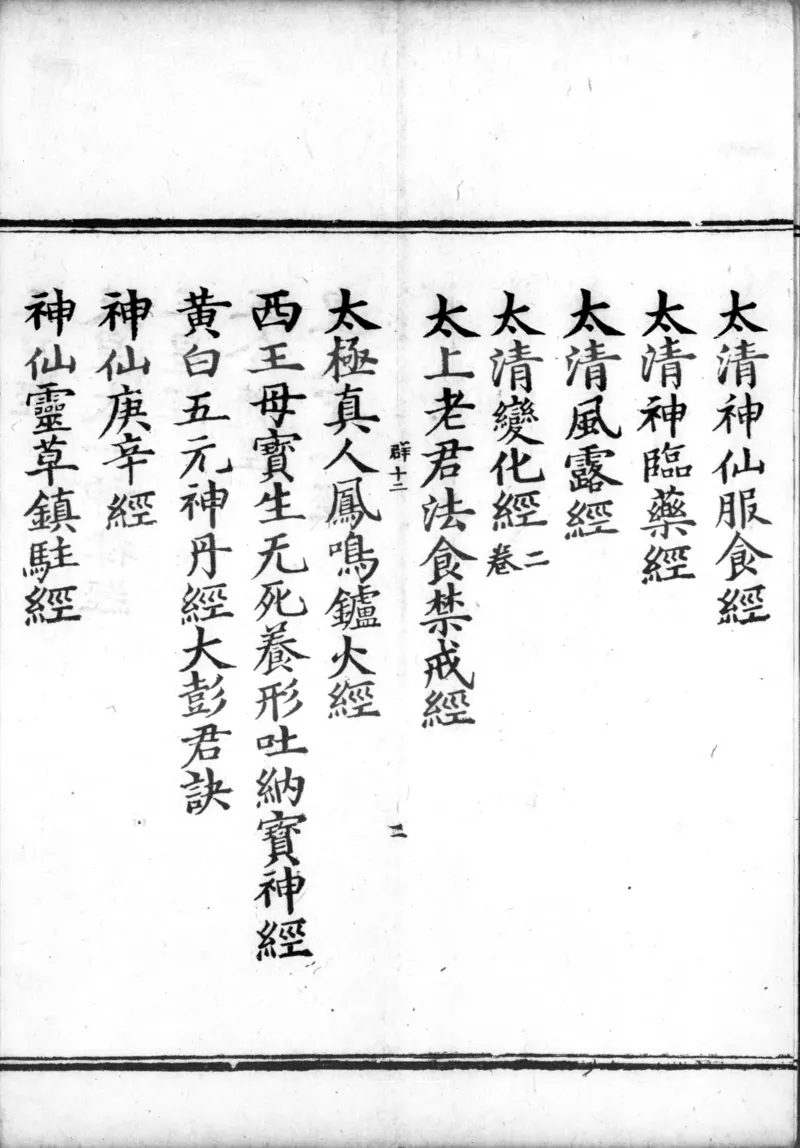 太清神仙服食經
太清神臨藥經
太清風露經
太清變化經二卷
太上老君法食禁戒經
群十二
二
太極真人鳳鳴鑪火經
西王母寳生无死養形吐納寳神經
黄白五元神丹經大彭君訣
神仙庚辛經
神仙靈草鎮駐經